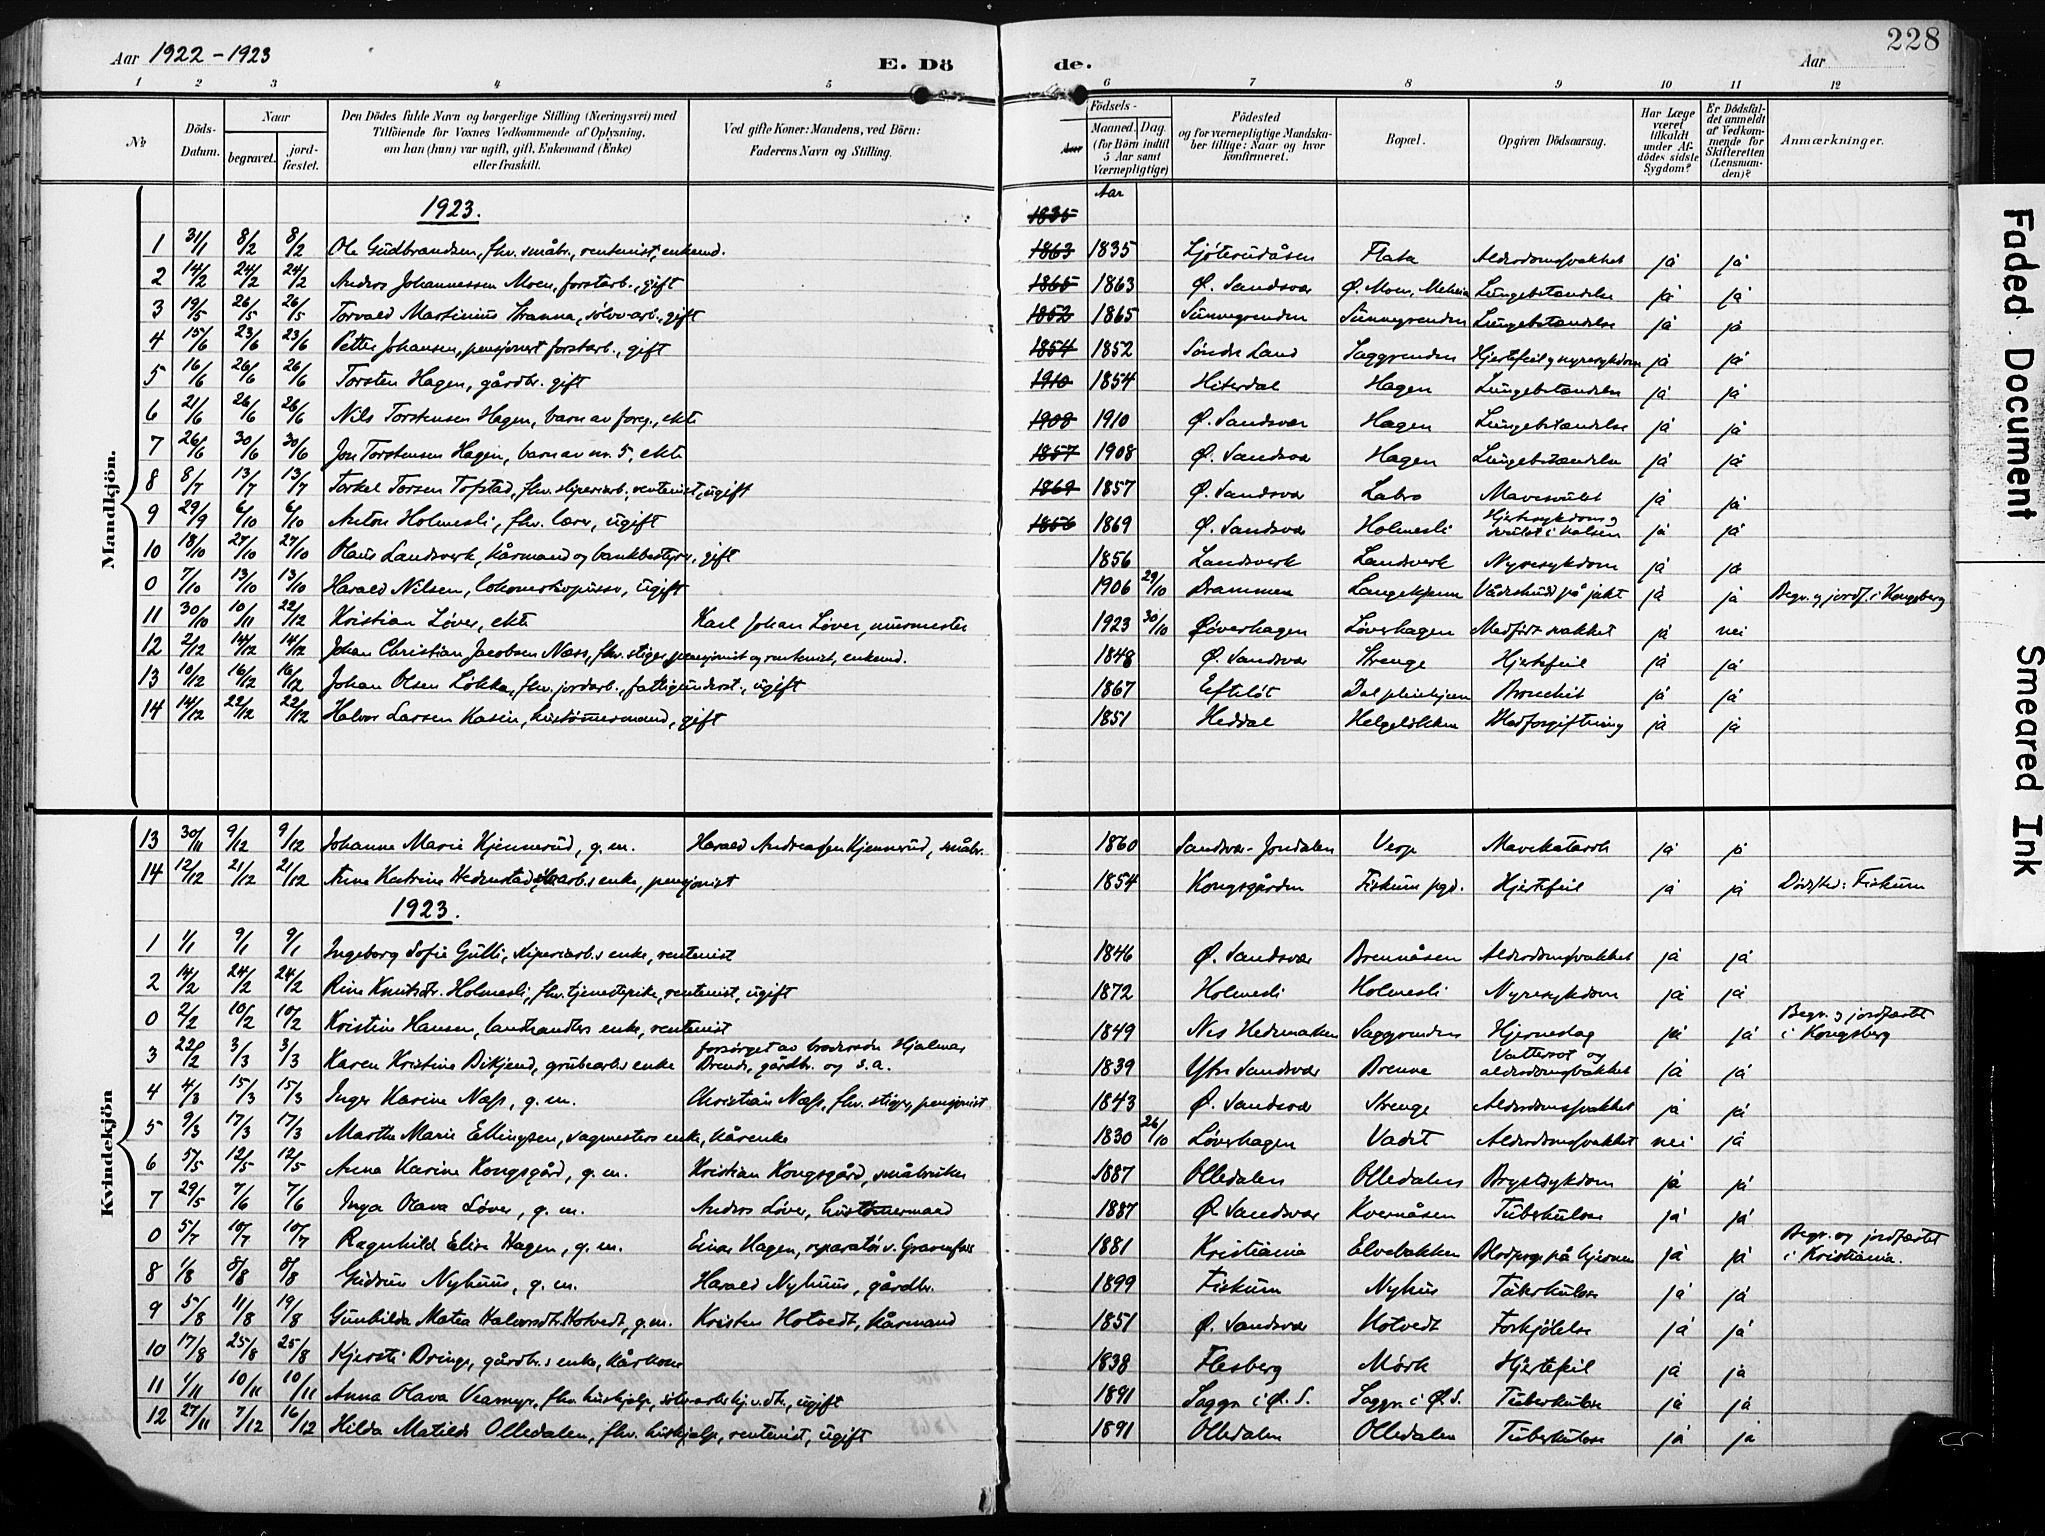 Aar 1922-1923
E. Dö de.
Aar
228
1 2 3 4 5 6 7 8 9 10 11 12
No
Döds-Datum.
Naar
begravet. jordfæstet.
Den Dödes fulde Navn og borgerlige Stilling (Næringsvei) med Tilföiende for Voxnes Vedkommende af Oplysning, om han (hun) var ugift, gift, Enkemand (Enke) eller fraskilt.
Ved gifte Koner: Mandens, ved Börn: Faderens Navn og Stilling.
Födsels-
Aar Maaned. Dag.
(for Börn indtil 5 Aar samt Værnepligtige)
Födested og for værnepligtige Mandskaber tillige: Naar og hvor konfirmeret.
Bopæl.
Opgiven Dödsaarsag.
Har Læge været tilkaldt under Afdødes sidste Sygdom?
Er Dödsfaldet anmeldt af Vedkommende for Skifteretten (Lensmanden)?
Anmærkninger.
Aar
Mandkjön.
1923.
1835
1 31/1 8/2 8/2 Ole Gudbrandsen, fhv. småbr., rentenist, enkemd. 1863 1835 Ljøterudåsen Flata Alderdomssvakhet ja ja
2 14/2 24/2 24/2 Anders Johannessen Moen, forstarb., gift 1865 1863 Ø. Sandsvær Ø. Moen, Meheia Lungebetændelse ja ja
3 19/5 26/5 26/5 Torvald Martinius Stranna, sølvv.arb., gift 1852 1865 Sunnegrenden Sunnegrenden Lungebetændelse ja ja
4 15/6 23/6 23/6 Petter Johansen, pensjonert forstarb., gift 1854 1852 Søndre Land Saggrenden Hjertefeil og nyresykdom ja ja
5 16/6 26/6 26/6 Torsten Hagen, gårdbr. gift 1910 1854 Hiterdal Hagen Lungebetændelse ja ja
6 21/6 26/6 26/6 Nils Torstensen Hagen, barn av foreg., ekte 1908 1910 Ø. Sandsvær Hagen Lungebetændelse ja ja
7 26/6 30/6 30/6 Jon Torstensen Hagen, barn av nr. 5, ekte 1857 1908 Ø. Sandsvær Hagen Lungebetændelse ja ja
8 8/7 13/7 13/7 Torkel Torsen Tofstad, fhv. sliperiarb., rentenist, ugift 1869 1857 Ø. Sandsvær Labro Mavesvulst ja ja
9 29/9 6/10 6/10 Anton Holmesli, fhv. lærer, ugift 1856 1869 Ø. Sandsvær Holmesli Hjertesykdom og svulst i halsen ja ja
10 18/10 27/10 27/10 Olaus Landsverk, kårmand og bankbestyrer, gift 1856 Landsverk Landsverk Nyresykdom ja ja
0 7/10 13/10 13/10 Harald Nilsen, lokomotivpusser, ugift 1906 29/10 Drammen Langekjenn Vådeskudd på jakt ja ja Begr. og jordf. i Kongsberg
11 30/10 10/11 22/12 Kristian Løver, ekte Karl Johan Løver, murmester 1923 30/10 Løverhagen Løverhagen Medfødt svakhet ja nei
12 2/12 14/12 14/12 Johan Christian Jacobsen Næss, fhv. stiger, pensjonist og rentenist, enkemd. 1848 Ø. Sandsvær Strenge Hjertefeil ja ja
13 10/12 16/12 16/12 Johan Olsen Lokka, fhv. jordarb., fattigunderst., ugift 1867 Efteløt Dal pleiehjem Bronchit ja ja
14 14/12 22/12 22/12 Halvor Larsen Kasin, hustømmermand, gift 1851 Heddal Helgeløkken Blodforgiftning ja ja
Kvindekjön
13 30/11 9/12 9/12 Johanne Marie Kjennerud, g.m. Harald Andreassen Kjennerud, småbr. 1860 Sandsvær-Jondalen Verp Mavekatarrh ja ja
14 12/12 21/12 21/12 Anne Katrine Hedenstad, arb.s enke, pensjonist 1854 Kongsgården Fiskum pgd. Hjertefeil ja ja Dødssted: Fiskum
1923.
1 1/1 9/1 9/1 Ingeborg Sofie Gulli, sliperiarb.s enke, rentenist 1846 Ø. Sandsvær Brennåsen Alderdomssvakhet ja ja
2 14/2 24/2 24/2 Rine Knutsdtr. Holmesli, fhv. tjenestepike, rentenist, ugift 1872 Holmesli Holmesli Nyresykdom ja ja
0 2/2 10/2 10/2 Kristine Hansen, landhandlers enke, rentenist 1849 Nes Hedemarken Saggrenden Hjerneslag ja ja Begr. og jordfæstet i Kongsberg
3 22/2 3/3 3/3 Karen Kristine Bikjend, grubearb.s enke forsørget av brodersøn Hjalmar Brende, gårdbr. og s.a. 1839 Ytre Sandsvær Brenne Vattersot og alderdomssvakhet ja ja
4 4/3 15/3 15/3 Inger Karine Næss, g.m. Christian Næss, fhv. stiger, pensjonist 1843 Ø. Sandsvær Strenge Alderdomssvakhet ja ja
5 9/3 17/3 17/3 Marthe Marie Ellingsen, vagmesters enke, kårenke 1830 26/10 Løverhagen Vadet Alderdomssvakhet nei ja
6 5/5 12/5 12/5 Anna Karine Kongsgård, g.m. Kristian Kongsgård, småbruker 1887 Olledalen Olledalen Brystsykdom ja ja
7 29/5 7/6 7/6 Inga Olava Løver, g.m. Anders Løver, hustømmermand 1887 Ø. Sandsvær Kvernåsen Tuberkulose ja ja
0 5/7 10/7 10/7 Ragnhild Elise Hagen, g.m. Einar Hagen, reparatør v. Gravenfos 1881 Kristiania Elvebakken Blodprop på hjernen ja ja Begr. og jordfæstet i Kristiania.
8 1/8 8/8 8/8 Gudrun Nyhuus, g.m. Harald Nyhuus, gårdbr. 1899 Fiskum Nyhus Tuberkulose ja ja
9 5/8 11/8 19/8 Gunhilda Matea Halvorsdtr. Hotvedt, g.m. Kristen Hotvedt, kårmand 1851 Ø. Sandsvær Hotvedt Forkjølelse ja ja
10 17/8 25/8 25/8 Kjersti Bringe, gårdbr.s enke, kårkone 1838 Flesberg Mørk Hjertefeil ja ja
11 1/11 10/11 10/11 Anna Olava Veamyr, fhv. hushjelp, sølvarbeiderdtr., ugift 1891 Saggr. i Ø.S. Saggr. i Ø.S. Tuberkulose ja ja
12 27/11 7/12 16/12 Hilda Matilde Olledalen, fhv. hushjelp, rentenist, ugift 1891 Olledalen Olledalen Tuberkulose ja ja
Faded Document
Smeared Ink